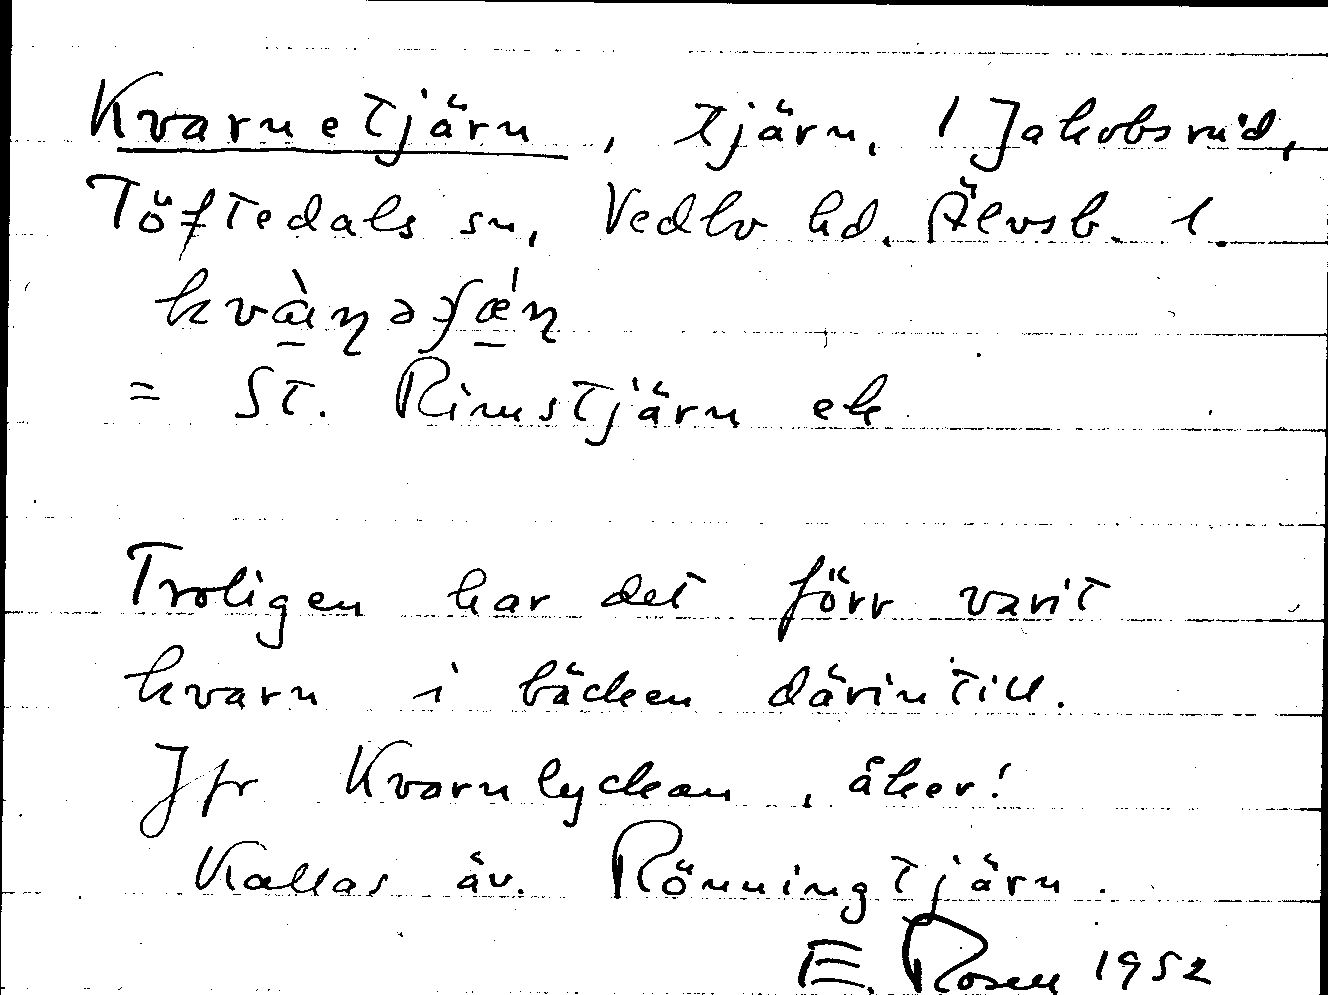 Kvarnetjärn, tjärn, 1 Jakobsrud,
Töftedals sn, Vedbo hd. Älvsb. l.
= St. Rimstjärn ek
Troligen har det förr varit
kvarn i bäcken därintill.
Jfr Kvarnlyckan, åker!
Kallas äv. Rönningtjärn.
E. Rosen 1952